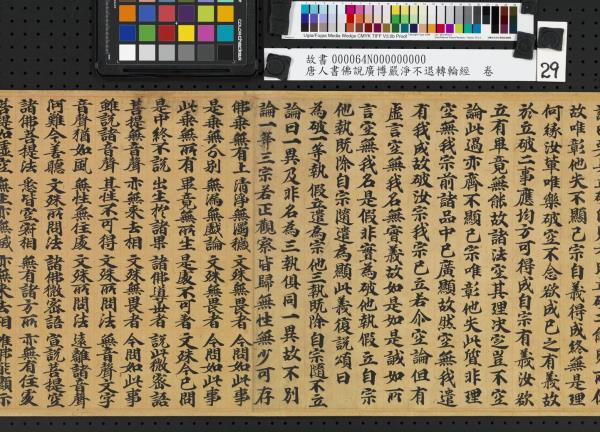 Ugra/Fogra Media Wedge CMYK TIFF V3.0b Proof
故書 000064N000000000
唐人書佛說廣博嚴淨不退轉輪經 卷
29
故唯彰他失不顯己宗自義得成終無是理
何緣汝輩唯樂破空不念欲成已之有義故
於立破二事應均方可得成自宗有義汝欲
立有畢竟無能故諸法空其理決定豈不空
論此過亦齊不顯己宗唯彰他失此質非理
空無我宗前諸品中已廣顯故然空無我遣
有我成故破汝宗我宗已立若尒空論但有
虛言空無我名無實義故如是如是誠如所
言空無我名是假非實為破他執假立自宗
他執既除自宗隨遣為顯此義復說頌曰
為破一等執假立遣為宗他三執既除自宗隨不立
論曰一異及非名為三執俱同一異故不別
論一等三宗若正觀察皆歸無性無少可存
佛乘無有上 清淨無濁穢 文殊無畏者 今問如此事
是乘無分別 無漏無戲論 文殊無畏者 今問如此事
此乘無所有 畢竟無所生 是處不可著 文殊今已問
是中終不說 出生於諸果 諸佛導世者 說此微密語
菩提無音聲 亦無來去相 文殊無畏者 今問如此事
雖說諸音聲 其性不可得 文殊所問法 無音聲文字
音聲猶如風 無性無住處 文殊所問法 遠離諸音聲
阿難今善聽 文殊所問法 諸佛微密語 宣說菩提空
諸佛菩提法 悉皆空寂相 無有諸方所 亦無有住處
菩提如虛空 無生亦無滅 亦無來去相 唯佛能顯示